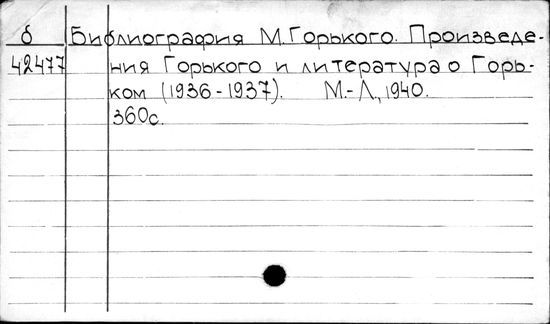 б Библиография М.Горького. Произведе-
42477 ния Горького и литература о Горь-
ком (1936-1937). М.-Л., 1940.
360с.